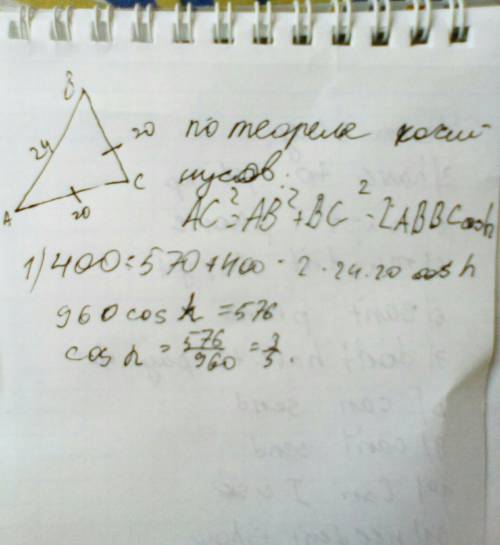 B
24
20
C
A
20
по теореме коси
нусов:
AC²=AB²+BC²-2ABBCcosL
1) 400=570+400-2·24·20 cosL
960cosL=576
cosL=576/960=3/5.